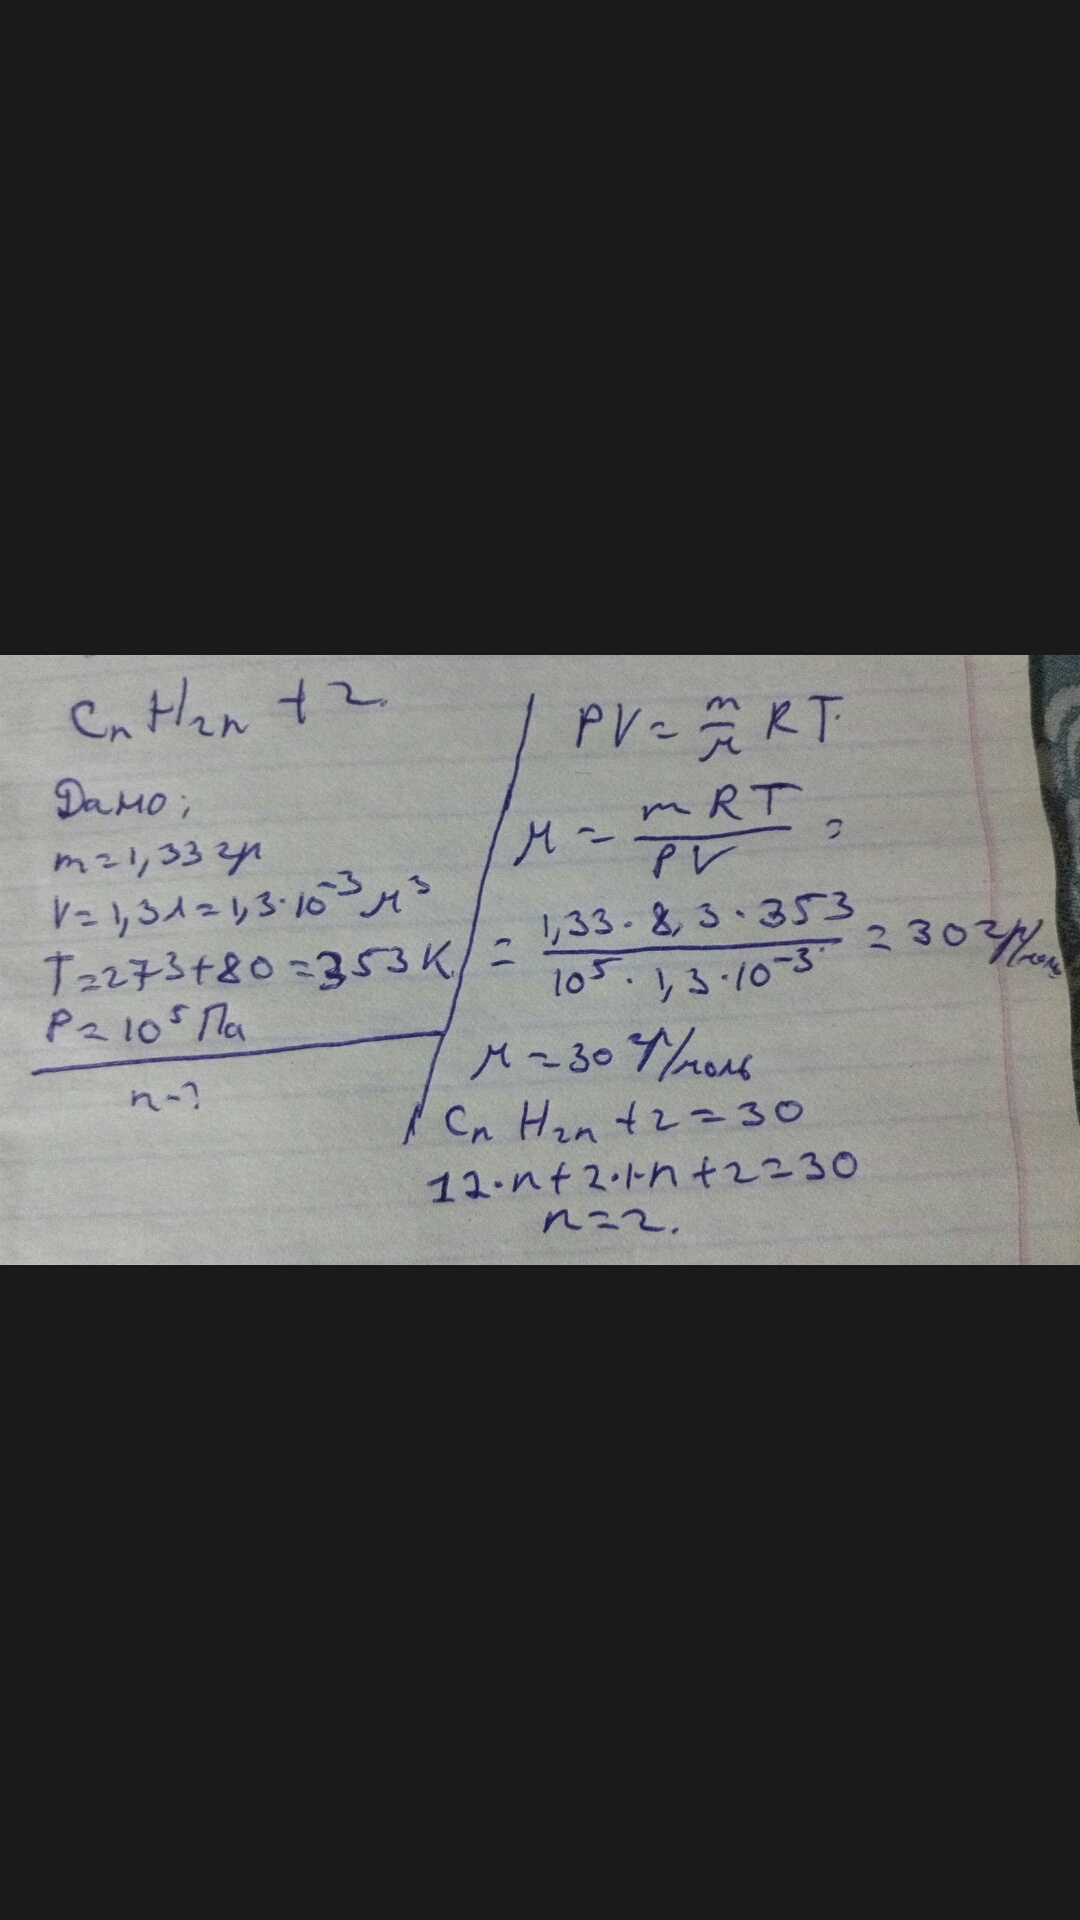 CₙH₂ₙ + 2.
Дано;
m = 1,33 гр
V = 1,3 л = 1,3 · 10⁻³ м³
T = 273 + 80 = 353 K
P = 10⁵ Па
n - ?
PV = m/μ RT.
μ = mRT/PV =
= 1,33 · 8,3 · 353 / 10⁵ · 1,3 · 10⁻³ = 30 гр/моль
μ = 30 гр/моль
Cₙ H₂ₙ + 2 = 30
12 · n + 2 · 1 · n + 2 = 30
n = 2.